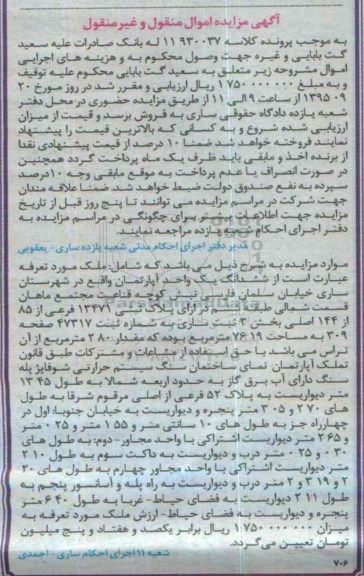 آگهی مزایده اموال منقول و غیرمنقول
به موجب پرونده کلاسه ۹۳۰۰۳۷ ۱۱ له بانک صادرات علیه سعید
گت بابایی و غیره جهت وصول محکوم به و هزینه های اجرایی
اموال مشروحه زیر متعلق به سعید گت بابایی محکوم علیه توقیف
و به مبلغ ۱۷۵۰۰۰۰۰۰۰ ریال ارزیابی و مقرر شد در روز مورخ ۲۰
۰۹ ۱۳۹۵ از ساعت ۹ الی ۱۱ از طریق مزایده حضوری در محل دفتر
شعبه یازده دادگاه حقوقی ساری به فروش برسد و قیمت از میزان
ارزیابی شده شروع و به کسانی که بالاترین قیمت را پیشنهاد
نمایند فروخته خواهد شد ضمنا ۱۰ درصد از قیمت پیشنهادی نقدا
از برنده اخذ و مابقی باید ظرف یک ماه پرداخت گردد همچنین
در صورت انصراف یا عدم پرداخت به موقع مابقی وجه ۱۰درصد
سپرده به نفع صندوق دولت ضبط خواهد شد ضمنا علاقه مندان
جهت شرکت در مراسم مزایده می توانند تا پنج روز قبل از تاریخ
مزایده جهت اطلاعات بیشتر برای چگونگی در مراسم مزایده به
دفتر اجرای احکام شعبه یازده مراجعه نمایند.
مدیر دفتر اجرای احکام مدنی شعبه یازده ساری - یعقوبی
موارد مزایده به شرح ذیل می باشد که شامل: ملک مورد تعرفه
عبارت است از ششدانگ یک واحد آپارتمان واقع در شهرستان
ساری خیابان سلمان فارسی نبش کوچه قناعت مجتمع ماهان
قسمت شمالی طبقه ششم دارای پلاک ثبتی ۱۳۴۷۱ فرعی از ۸۵
از ۱۴۴ اصلی بخش ۳ ثبت ساری به شماره ثبت ۴۷۳۱۷ صفحه
۳۰۹ به مساحت ۷۶۱۹ مترمربع بوده که مقدار ۲۸۰ مترمربع از آن
تراس می باشد با حق استفاده از مشاعات و مشترکات طبق قانون
تملک آپارتمان نمای ساختمان سنگ سیستم حرارتی شوفاژ پله
سنگ دارای آب برق گاز به حدود اربعه شمالا به طول ۴۵ ۱۳
متر دیواریست به پلاک ۵۲ فرعی از اصلی مرقوم شرقا به طول
های ۲۷۰ و ۳۰۵ متر پنجره و دیواریست به خیابان جنوبا: اول در
چهارراه جز به طول های ۱۰ سانتی متر و ۱۵۵ متر و ۰۲۵ متر
و ۲۶۵ متر دیواریست اشتراکی با واحد مجاور- دوم: به طول های
۰۳۰ و ۰۲۵ متر درب و دیواریست به داکت سوم به طول ۲۱۰
متر دیواریست اشتراکی با واحد مجاور چهارم به طول های ۲۰
۲ و ۳۱۹ و ۲ متر درب و دیواریست به راه پله و آسانسور پنجم به
طول ۲۱۱ دیواریست به فضای حیاط- غربا به طول ۶۴۰ متر
پنجره و دیواریست به فضای حیاط- ارزش ملک مورد تعرفه به
میزان ۱۷۵۰۰۰۰۰۰۰ ریال برابر یکصد و هفتاد و پنج میلیون
تومان تعیین می گردد.
شعبه ۱۱ اجرای احکام ساری - احمدی
۷۰۶